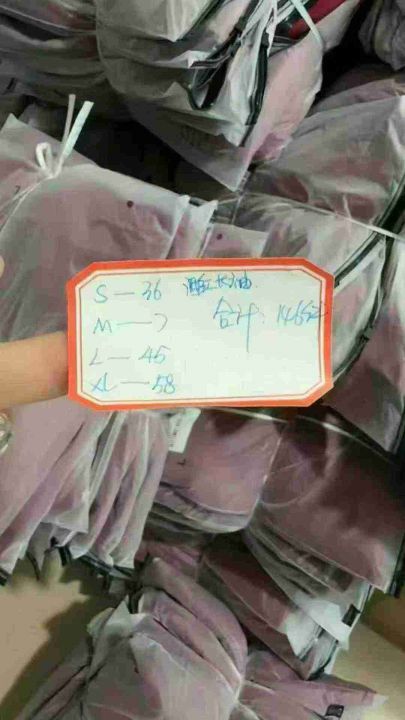 S — 36 酒红长油
M — 7
合计: 146
L — 45
XL — 58